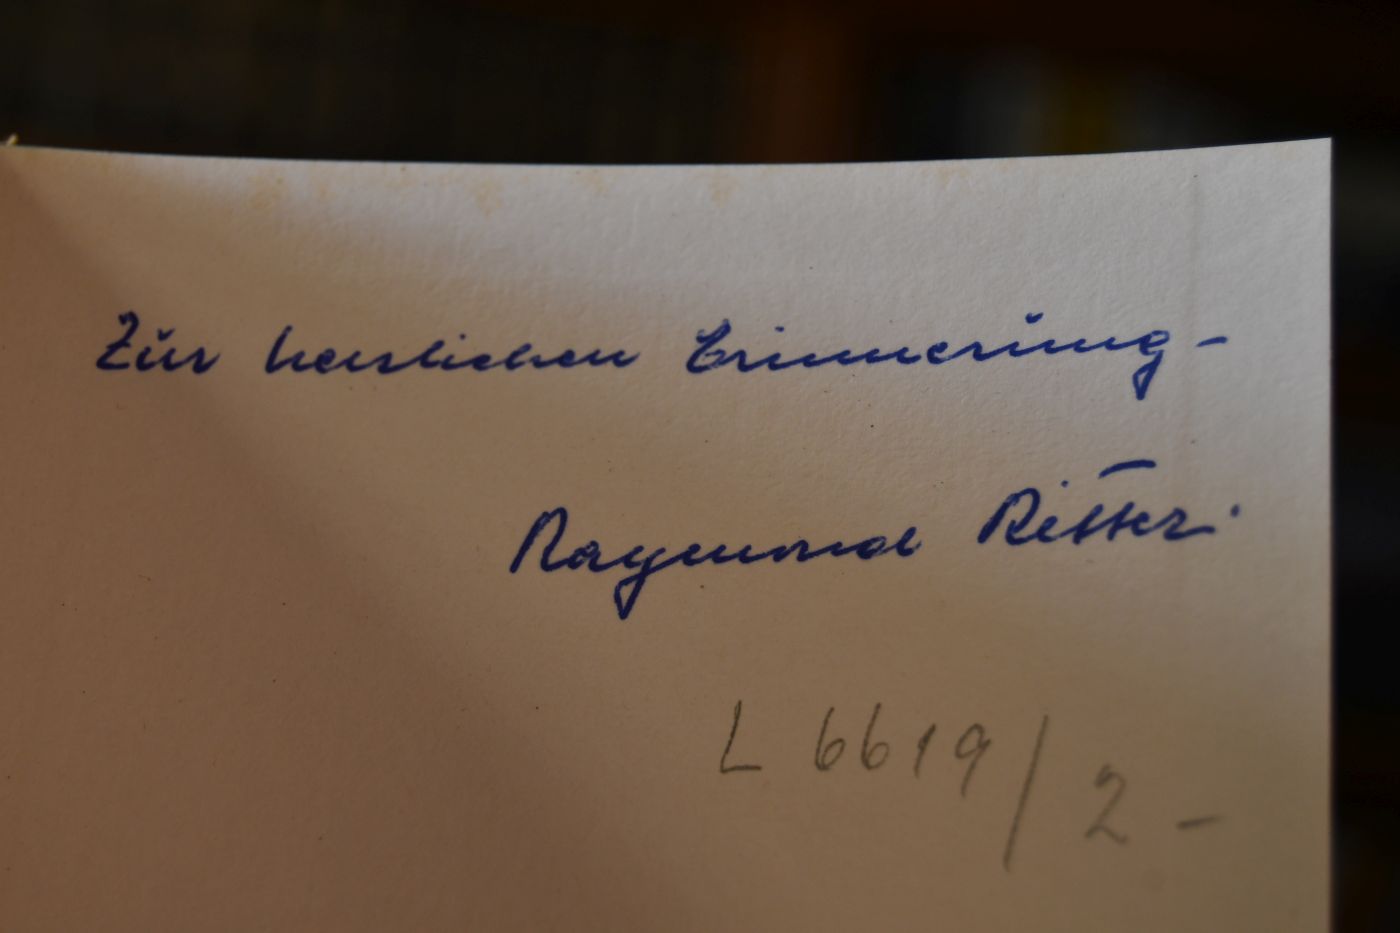 Zur herzlichen Erinnerung –
Raymond Ritter.
L 6619/2 –